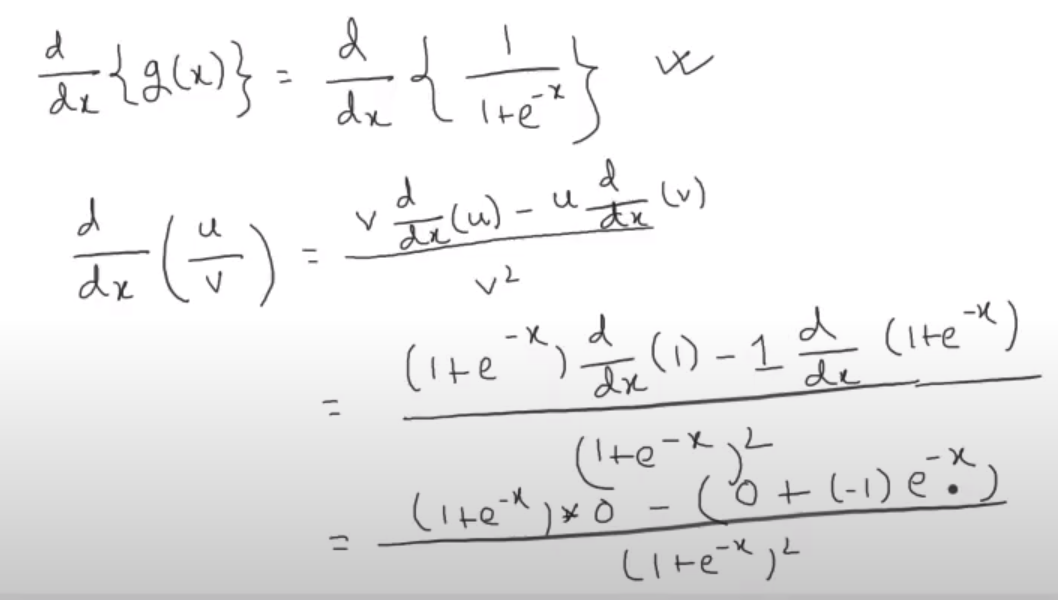 d/dx {g(x)} = d/dx { 1/(1+e^-x) }
d/dx (u/v) = (v d/dx (u) - u d/dx (v))/v^2
= ((1+e^-x) d/dx (1) - 1 d/dx (1+e^-x))/(1+e^-x)^2
= ((1+e^-x) * 0 - (0 + (-1) e^-x))/(1+e^-x)^2